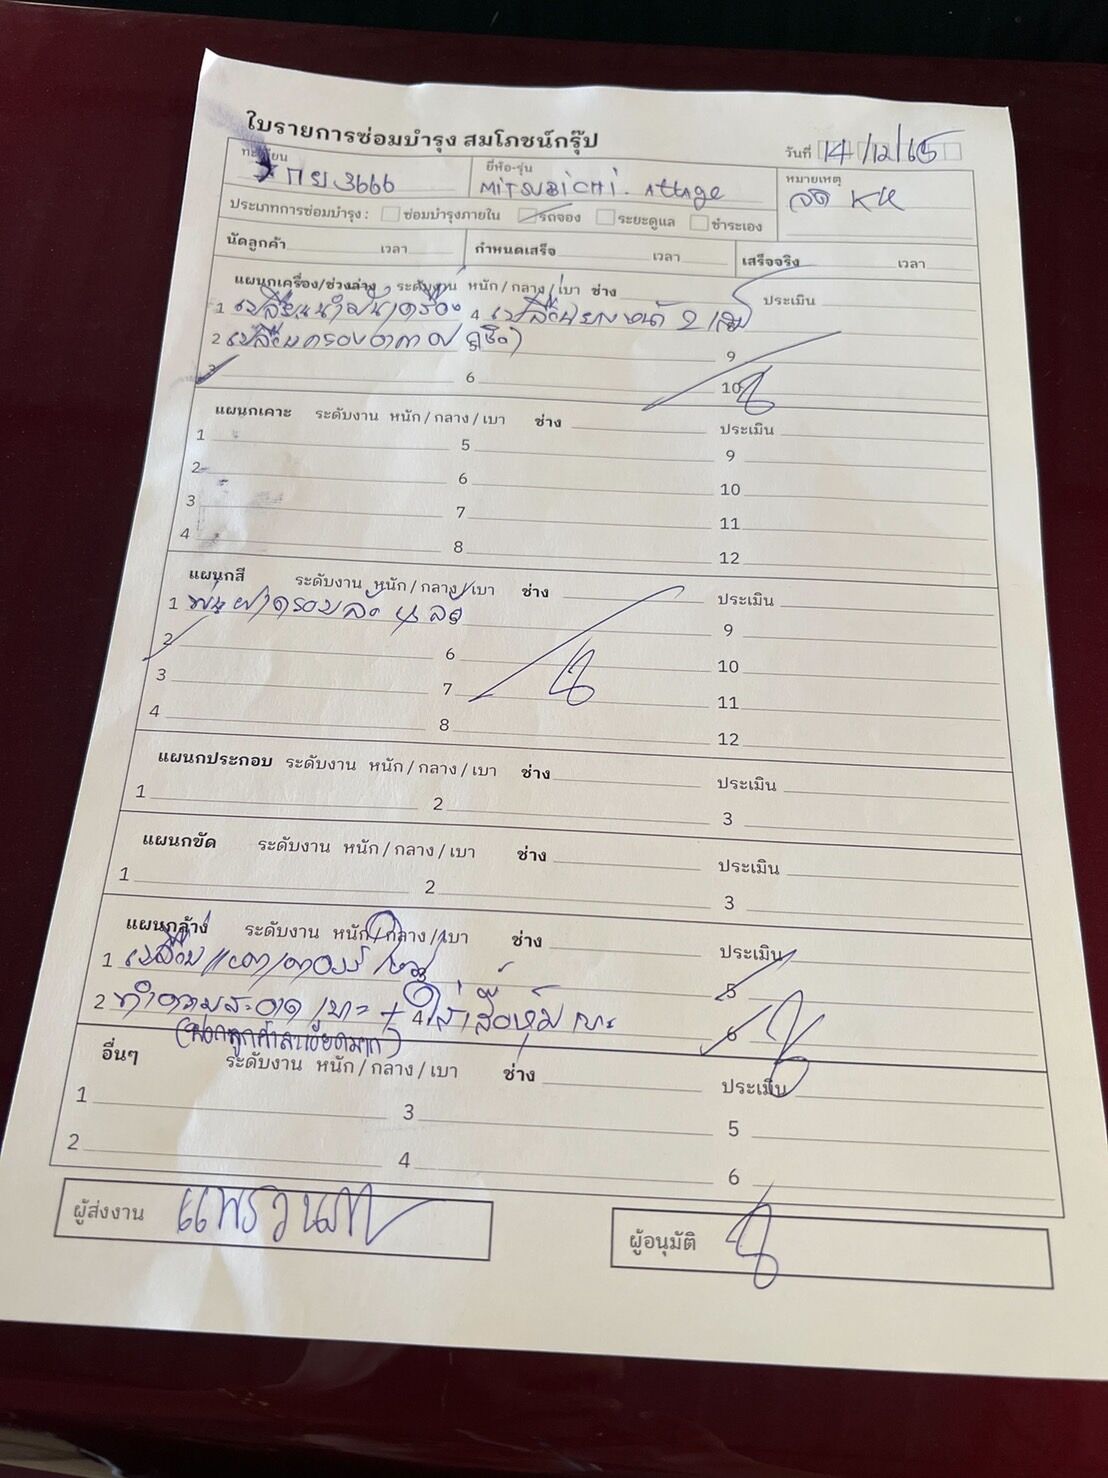 ใบรายการซ่อมบำรุง สมโภชน์กรุ๊ป
วันที่ 14/12/65
ทะเบียน กย 3666 ยี่ห้อ-รุ่น MITSUBICHI. Attage หมายเหตุ
ลด KM
ประเภทการซ่อมบำรุง : ซ่อมบำรุงภายใน รถจอง ระยะดูแล ชำระเอง
นัดลูกค้า เวลา กำหนดเสร็จ เวลา เสร็จจริง เวลา
แผนกเครื่อง/ช่วงล่าง ระดับงาน หนัก / กลาง / เบา ช่าง ประเมิน
1 เปลี่ยนน้ำมันเครื่อง 4 เปลี่ยนยางหน้า 2 เส้น
2 เปลี่ยนกรองอากาศ 9
3 6 10
แผนกเคาะ ระดับงาน หนัก / กลาง / เบา ช่าง ประเมิน
1 5 9
2 6 10
3 7 11
4 8 12
แผนกสี ระดับงาน หนัก / กลาง / เบา ช่าง ประเมิน
1 พ่นฝาครอบล้อ 9
2 6 10
3 7 11
4 8 12
แผนกประกอบ ระดับงาน หนัก / กลาง / เบา ช่าง ประเมิน
1 2 3
แผนกขัด ระดับงาน หนัก / กลาง / เบา ช่าง ประเมิน
1 2 3
แผนกล้าง ระดับงาน หนัก / กลาง / เบา ช่าง ประเมิน
1 เปลี่ยนแบตเตอรี่ใหม่ 5
2 ทำความสะอาดเบาะ + 4 ใส่เสื้อหุ้มเบาะ 6
(บอกลูกค้าละเอียดมาก)
อื่นๆ ระดับงาน หนัก / กลาง / เบา ช่าง ประเมิน
1 3 5
2 4 6
ผู้ส่งงาน แพรวนภา ผู้อนุมัติ